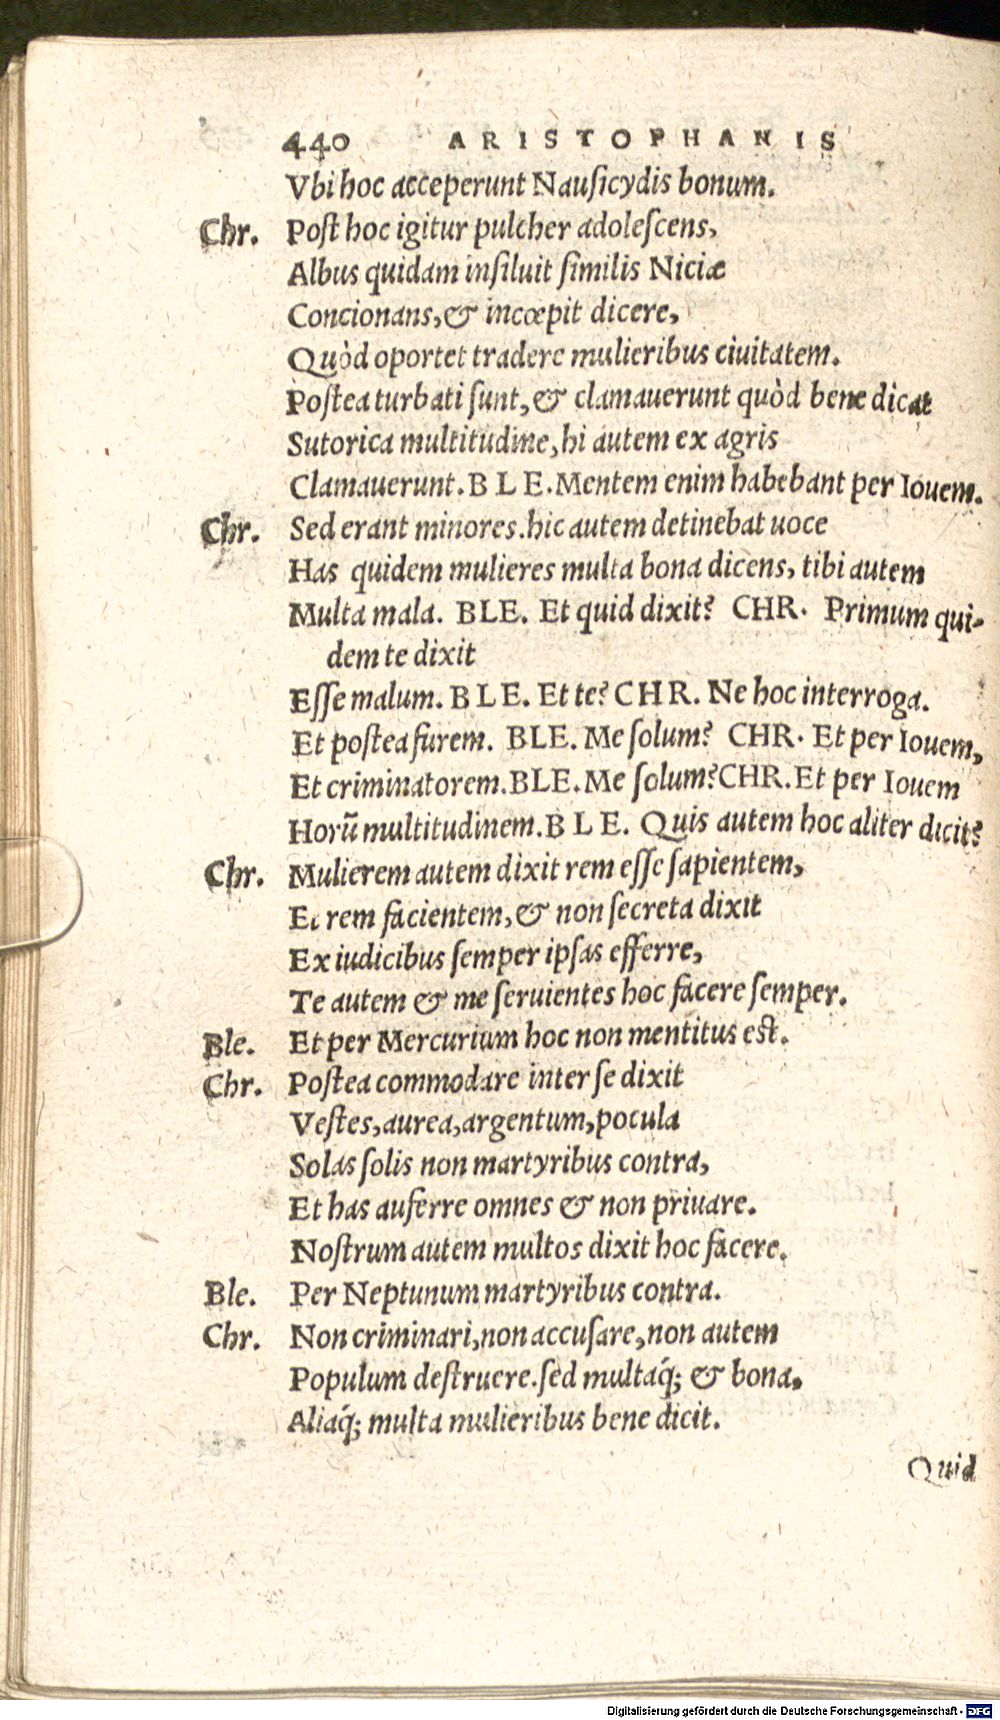 440 ARISTOPHANIS
Vbi hoc acceperunt Nauſicydis bonum.
Chr. Poſt hoc igitur pulcher adoleſcens,
Albus quidam inſiluit ſimilis Niciæ
Concionans, & incœpit dicere,
Quòd oportet tradere mulieribus ciuitatem.
Poſtea turbati ſunt, & clamauerunt quòd bene dicat
Sutorica multitudine, hi autem ex agris
Clamauerunt. BLE. Mentem enim habebant per Iouem.
Chr. Sed erant minores. hic autem detinebat uoce
Has quidem mulieres multa bona dicens, tibi autem
Multa mala. BLE. Et quid dixit? CHR. Primum qui-
dem te dixit
Eſſe malum. BLE. Et te? CHR. Ne hoc interroga.
Et poſtea furem. BLE. Me ſolum? CHR. Et per Iouem,
Et criminatorem. BLE. Me ſolum? CHR. Et per Iouem
Horũ multitudinem. BLE. Quis autem hoc aliter dicit?
Chr. Mulierem autem dixit rem eſſe ſapientem,
Et rem facientem, & non ſecreta dixit
Ex iudicibus ſemper ipſas efferre,
Te autem & me ſeruientes hoc facere ſemper.
Ble. Et per Mercurium hoc non mentitus est.
Chr. Poſtea commodare inter ſe dixit
Veſtes, aurea, argentum, pocula
Solas ſolis non martyribus contra,
Et has auferre omnes & non priuare.
Noſtrum autem multos dixit hoc facere.
Ble. Per Neptunum martyribus contra.
Chr. Non criminari, non accuſare, non autem
Populum deſtruere. ſed multaq́; & bona,
Aliaq́; multa mulieribus bene dicit.
Quid
Digitalisierung gefördert durch die Deutsche Forschungsgemeinschaft - DFG